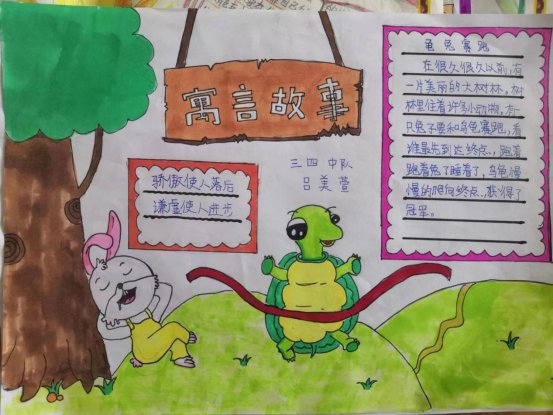 寓言故事
三四中队
吕美萱
骄傲使人落后
谦虚使人进步
龟兔赛跑
在很久很久以前，有
一片美丽的大树林，树
林里住着许多小动物，有一
只兔子要和乌龟赛跑，看
谁最先到达终点，跑着
跑着兔子睡着了，乌龟慢
慢的爬向终点，获得了
冠军。